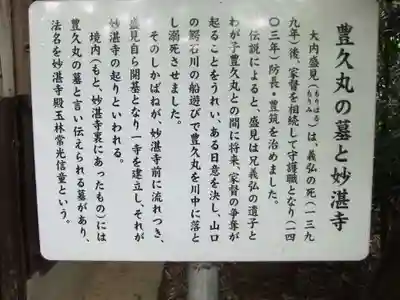 豊久丸の墓と妙湛寺
大内盛見(もりはる)(もりみ)は、義弘の死(一三九
九年)後、家督を相続して守護職となり(一四
〇三年)防長・豊筑を治めました。
伝説によると、盛見は兄義弘の遺子と
わが子豊久丸との間に将来、家督の争奪が
起ることをうれい、ある日意を決し、山口
の鰐石川の船遊びで豊久丸を川中に落と
し溺死させました。
そのしかばねが、妙湛寺前に流れつき、
盛見自ら開基となり一寺を建立し、それが
妙湛寺の起りといわれる。
境内(もと、妙湛寺裏にあったもの)には
豊久丸の墓と言い伝えられる墓があり、
法名を妙湛寺殿玉林常光信童という。